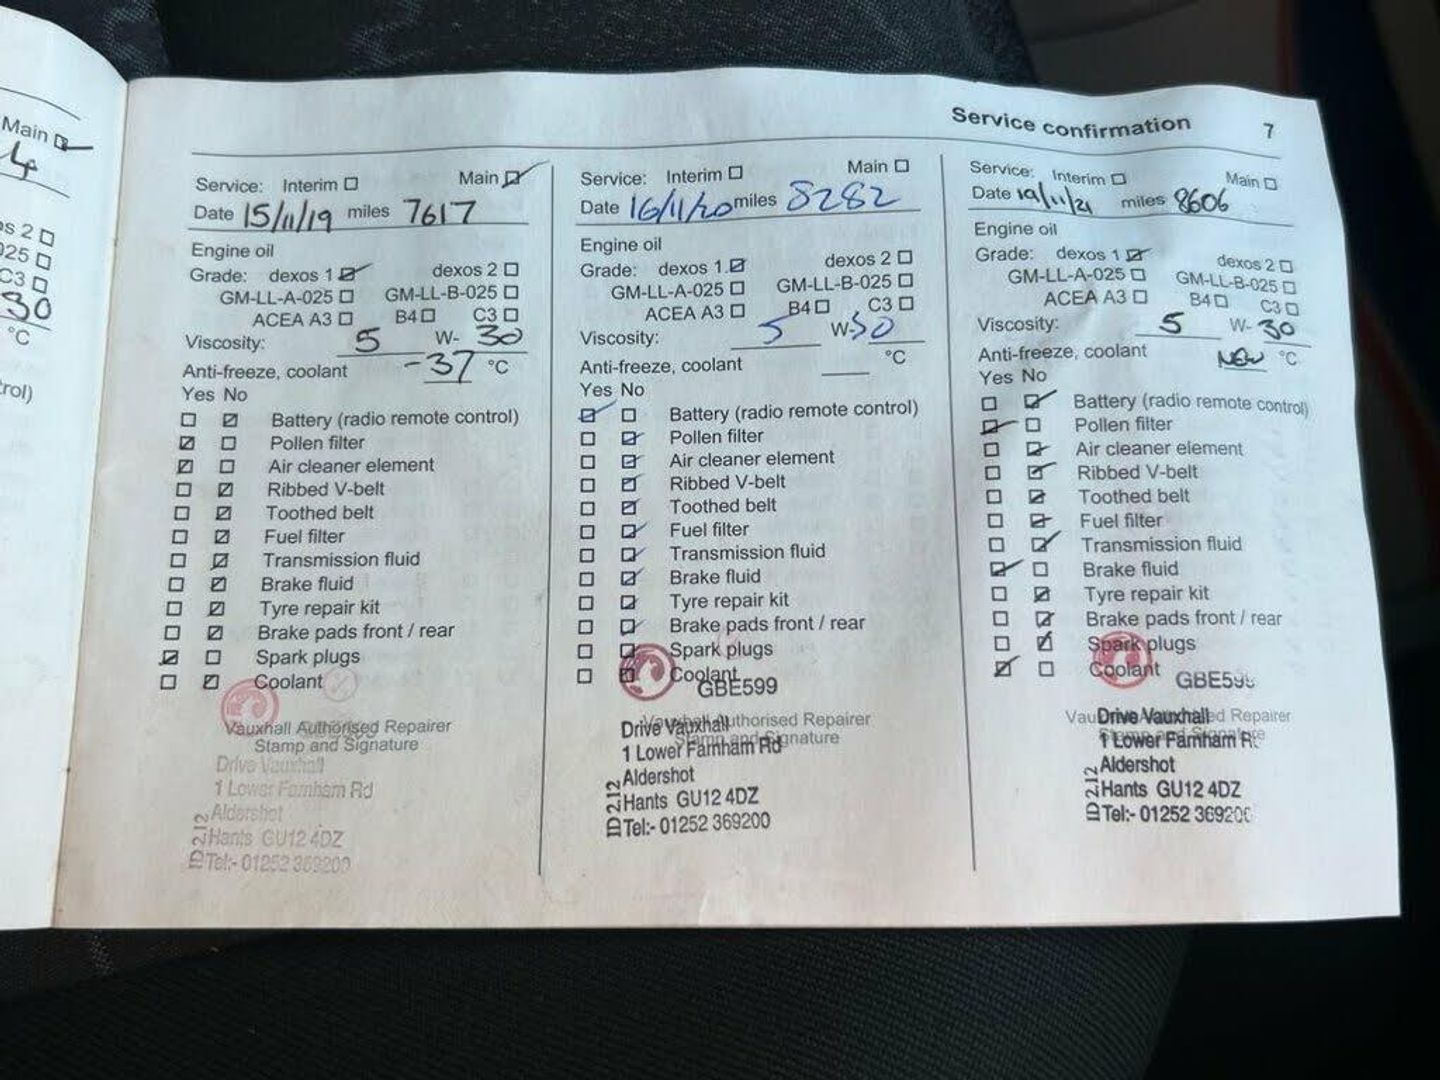 Main
4
os 2
025
C3
30
°C
rol)
Service confirmation 7
Service: Interim Main
Date 15/11/19 miles 7617
Engine oil
Grade: dexos 1 dexos 2
GM-LL-A-025 GM-LL-B-025
ACEA A3 B4 C3
Viscosity: 5 W- 30
Anti-freeze, coolant -37 °C
Yes No
Battery (radio remote control)
Pollen filter
Air cleaner element
Ribbed V-belt
Toothed belt
Fuel filter
Transmission fluid
Brake fluid
Tyre repair kit
Brake pads front / rear
Spark plugs
Coolant
Vauxhall Authorised Repairer
Stamp and Signature
Drive Vauxhall
1 Lower Farnham Rd
Aldershot
Hants GU12 4DZ
Tel:- 01252 369200
ID 2.12
Service: Interim Main
Date 16/11/20 miles 8282
Engine oil
Grade: dexos 1 dexos 2
GM-LL-A-025 GM-LL-B-025
ACEA A3 B4 C3
Viscosity: 5 W-30
Anti-freeze, coolant °C
Yes No
Battery (radio remote control)
Pollen filter
Air cleaner element
Ribbed V-belt
Toothed belt
Fuel filter
Transmission fluid
Brake fluid
Tyre repair kit
Brake pads front / rear
Spark plugs
Coolant
GBE599
Vauxhall Authorised Repairer
Stamp and Signature
Drive Vauxhall
1 Lower Farnham Rd
Aldershot
Hants GU12 4DZ
Tel:- 01252 369200
ID 2.12
Service: Interim Main
Date 19/11/21 miles 8606
Engine oil
Grade: dexos 1 dexos 2
GM-LL-A-025 GM-LL-B-025
ACEA A3 B4 C3
Viscosity: 5 W- 30
Anti-freeze, coolant NEW °C
Yes No
Battery (radio remote control)
Pollen filter
Air cleaner element
Ribbed V-belt
Toothed belt
Fuel filter
Transmission fluid
Brake fluid
Tyre repair kit
Brake pads front / rear
Spark plugs
Coolant
GBE599
Vauxhall Authorised Repairer
Stamp and Signature
Drive Vauxhall
1 Lower Farnham Rd
Aldershot
Hants GU12 4DZ
Tel:- 01252 369200
ID 2.12